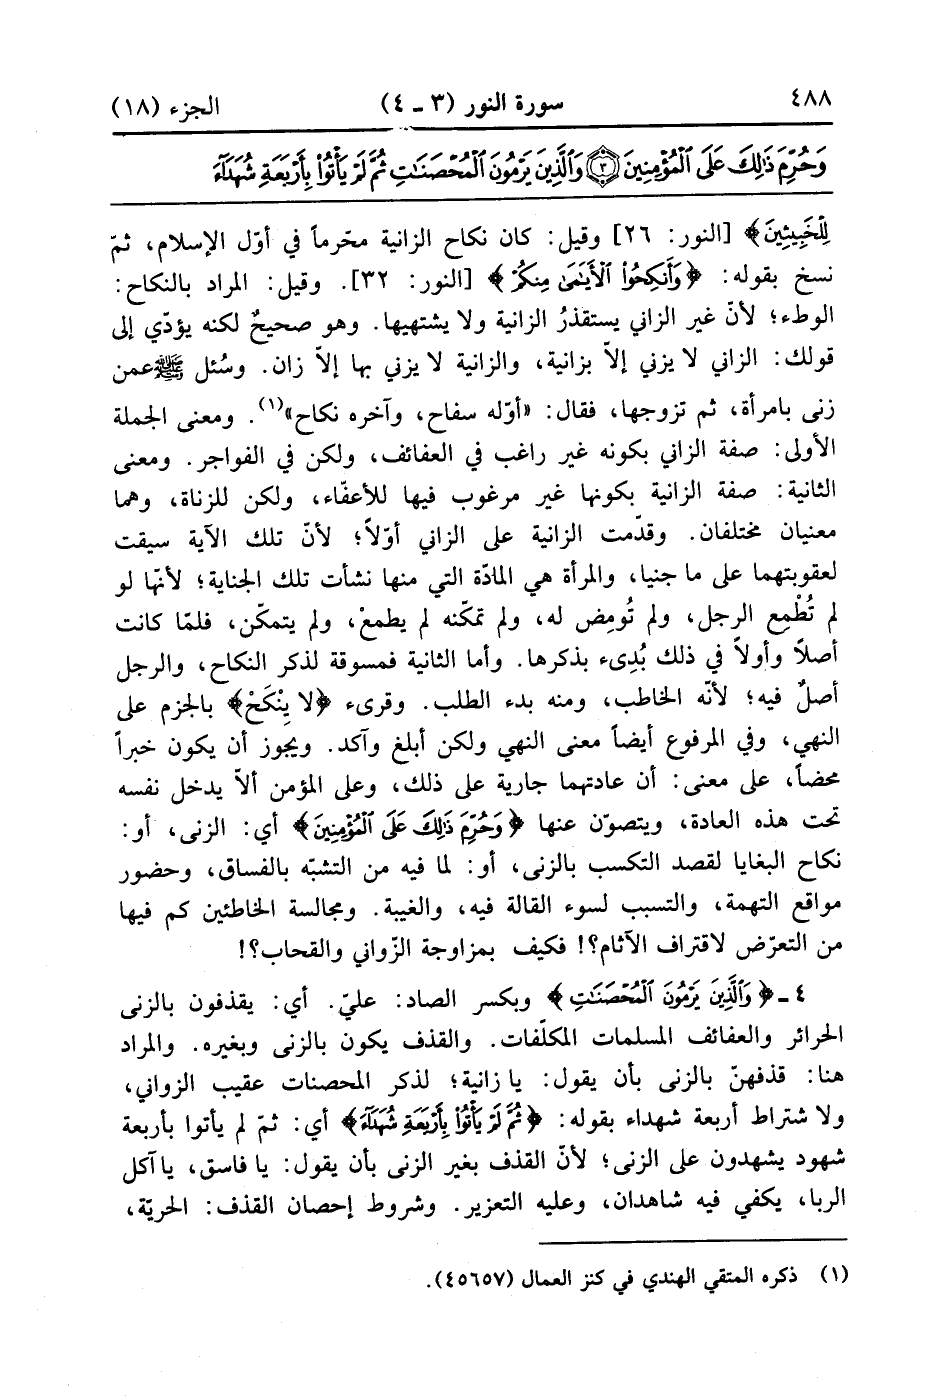 ٤٨٨ سورة النور (٣ - ٤) الجزء (١٨)
وَحُرِّمَ ذَٰلِكَ عَلَى ٱلْمُؤْمِنِينَ ٣ وَٱلَّذِينَ يَرْمُونَ ٱلْمُحْصَنَٰتِ ثُمَّ لَمْ يَأْتُوا۟ بِأَرْبَعَةِ شُهَدَآءَ
لِلْخَبِيثِينَ﴾ [النور: ٢٦] وقيل: كان نكاح الزانية محّرماً في أوّل الإسلام، ثمّ
نسخ بقوله: ﴿وَأَنكِحُوا۟ ٱلْأَيَٰمَىٰ مِنكُمْ﴾ [النور: ٣٢]. وقيل: المراد بالنكاح:
الوطء؛ لأنّ غير الزاني يستقذرُ الزانية ولا يشتهيها. وهو صحيحٌ لكنه يؤدّي إلى
قولك: الزاني لا يزني إلاّ بزانية، والزانية لا يزني بها إلاّ زان. وسُئل ﷺ عمن
زنى بامرأة، ثم تزوجها، فقال: «أوّله سفاح، وآخره نكاح»(١). ومعنى الجملة
الأولى: صفة الزاني بكونه غير راغب في العفائف، ولكن في الفواجر. ومعنى
الثانية: صفة الزانية بكونها غير مرغوب فيها للأعفّاء، ولكن للزناة، وهما
معنيان مختلفان. وقدّمت الزانية على الزاني أوّلاً؛ لأنّ تلك الآية سيقت
لعقوبتهما على ما جنيا، والمرأة هي المادّة التي منها نشأت تلك الجناية؛ لأنّها لو
لم تُطْمِع الرجل، ولم تُومِض له، ولم تمكّنه لم يطمعْ، ولم يتمكّن، فلمّا كانت
أصلاً وأولاً في ذلك بُدِىء بذكرها. وأما الثانية فمسوقة لذكر النكاح، والرجل
أصلٌ فيه؛ لأنّه الخاطب، ومنه بدء الطلب. وقرىء ﴿لا يِنْكَحْ﴾ بالجزم على
النهي، وفي المرفوع أيضاً معنى النهي ولكن أبلغ وآكد. ويجوز أن يكون خبراً
محضاً، على معنى: أن عادتهما جارية على ذلك، وعلى المؤمن ألاّ يدخل نفسه
تحت هذه العادة، ويتصوّن عنها ﴿وَحُرِّمَ ذَٰلِكَ عَلَى ٱلْمُؤْمِنِينَ﴾ أي: الزنى، أو:
نكاح البغايا لقصد التكسب بالزنى، أو: لما فيه من التشبّه بالفساق، وحضور
مواقع التهمة، والتسبب لسوء القالة فيه، والغيبة. ومجالسة الخاطئين كم فيها
من التعرّض لاقتراف الآثام؟! فكيف بمزاوجة الزّواني والقحاب؟!
٤ - ﴿وَٱلَّذِينَ يَرْمُونَ ٱلْمُحْصَنَٰتِ﴾ وبكسر الصاد: عليّ. أي: يقذفون بالزنى
الحرائر والعفائف المسلمات المكلّفات. والقذف يكون بالزنى وبغيره. والمراد
هنا: قذفهنّ بالزنى بأن يقول: يا زانية؛ لذكر المحصنات عقيب الزواني،
ولاشتراط أربعة شهداء بقوله: ﴿ثُمَّ لَمْ يَأْتُوا۟ بِأَرْبَعَةِ شُهَدَآءَ﴾ أي: ثمّ لم يأتوا بأربعة
شهود يشهدون على الزنى؛ لأنّ القذف بغير الزنى بأن يقول: يا فاسق، يا آكل
الربا، يكفي فيه شاهدان، وعليه التعزير. وشروط إحصان القذف: الحريّة،
(١) ذكره المتقي الهندي في كنز العمال (٤٥٦٥٧).